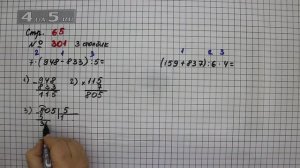 Стр. 65
№ 301 3 столбик
2 1 3 1 2 3
7·(948-833):5= (159+837):6·4=
1) -948 2) ×115
833 7
115 805
3) -805 5
5 1